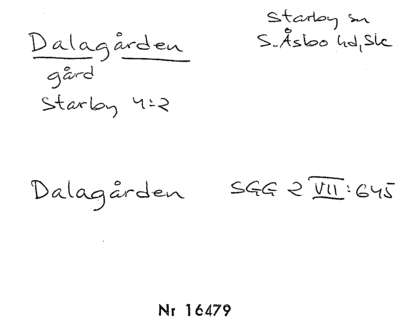 Dalagården
gård
Starby 4:2
Starby sn
S. Åsbo hd, Sk
Dalagården SGG 2 VII: 645
Nr 16479